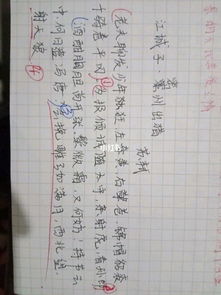 江城子 密州出猎
苏轼
老夫聊发少年狂,左牵黄,右擎苍,锦帽貂裘
千骑卷平冈。为报倾城随太守,亲射虎,看孙郎
酒酣胸胆尚开张,鬓微霜,又何妨!持节云
中,何日遣冯唐?会挽雕弓如满月,西北望
射天狼